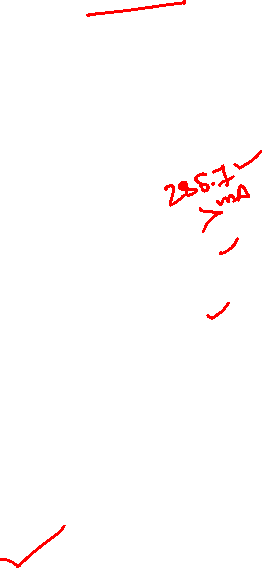 285.7
mA